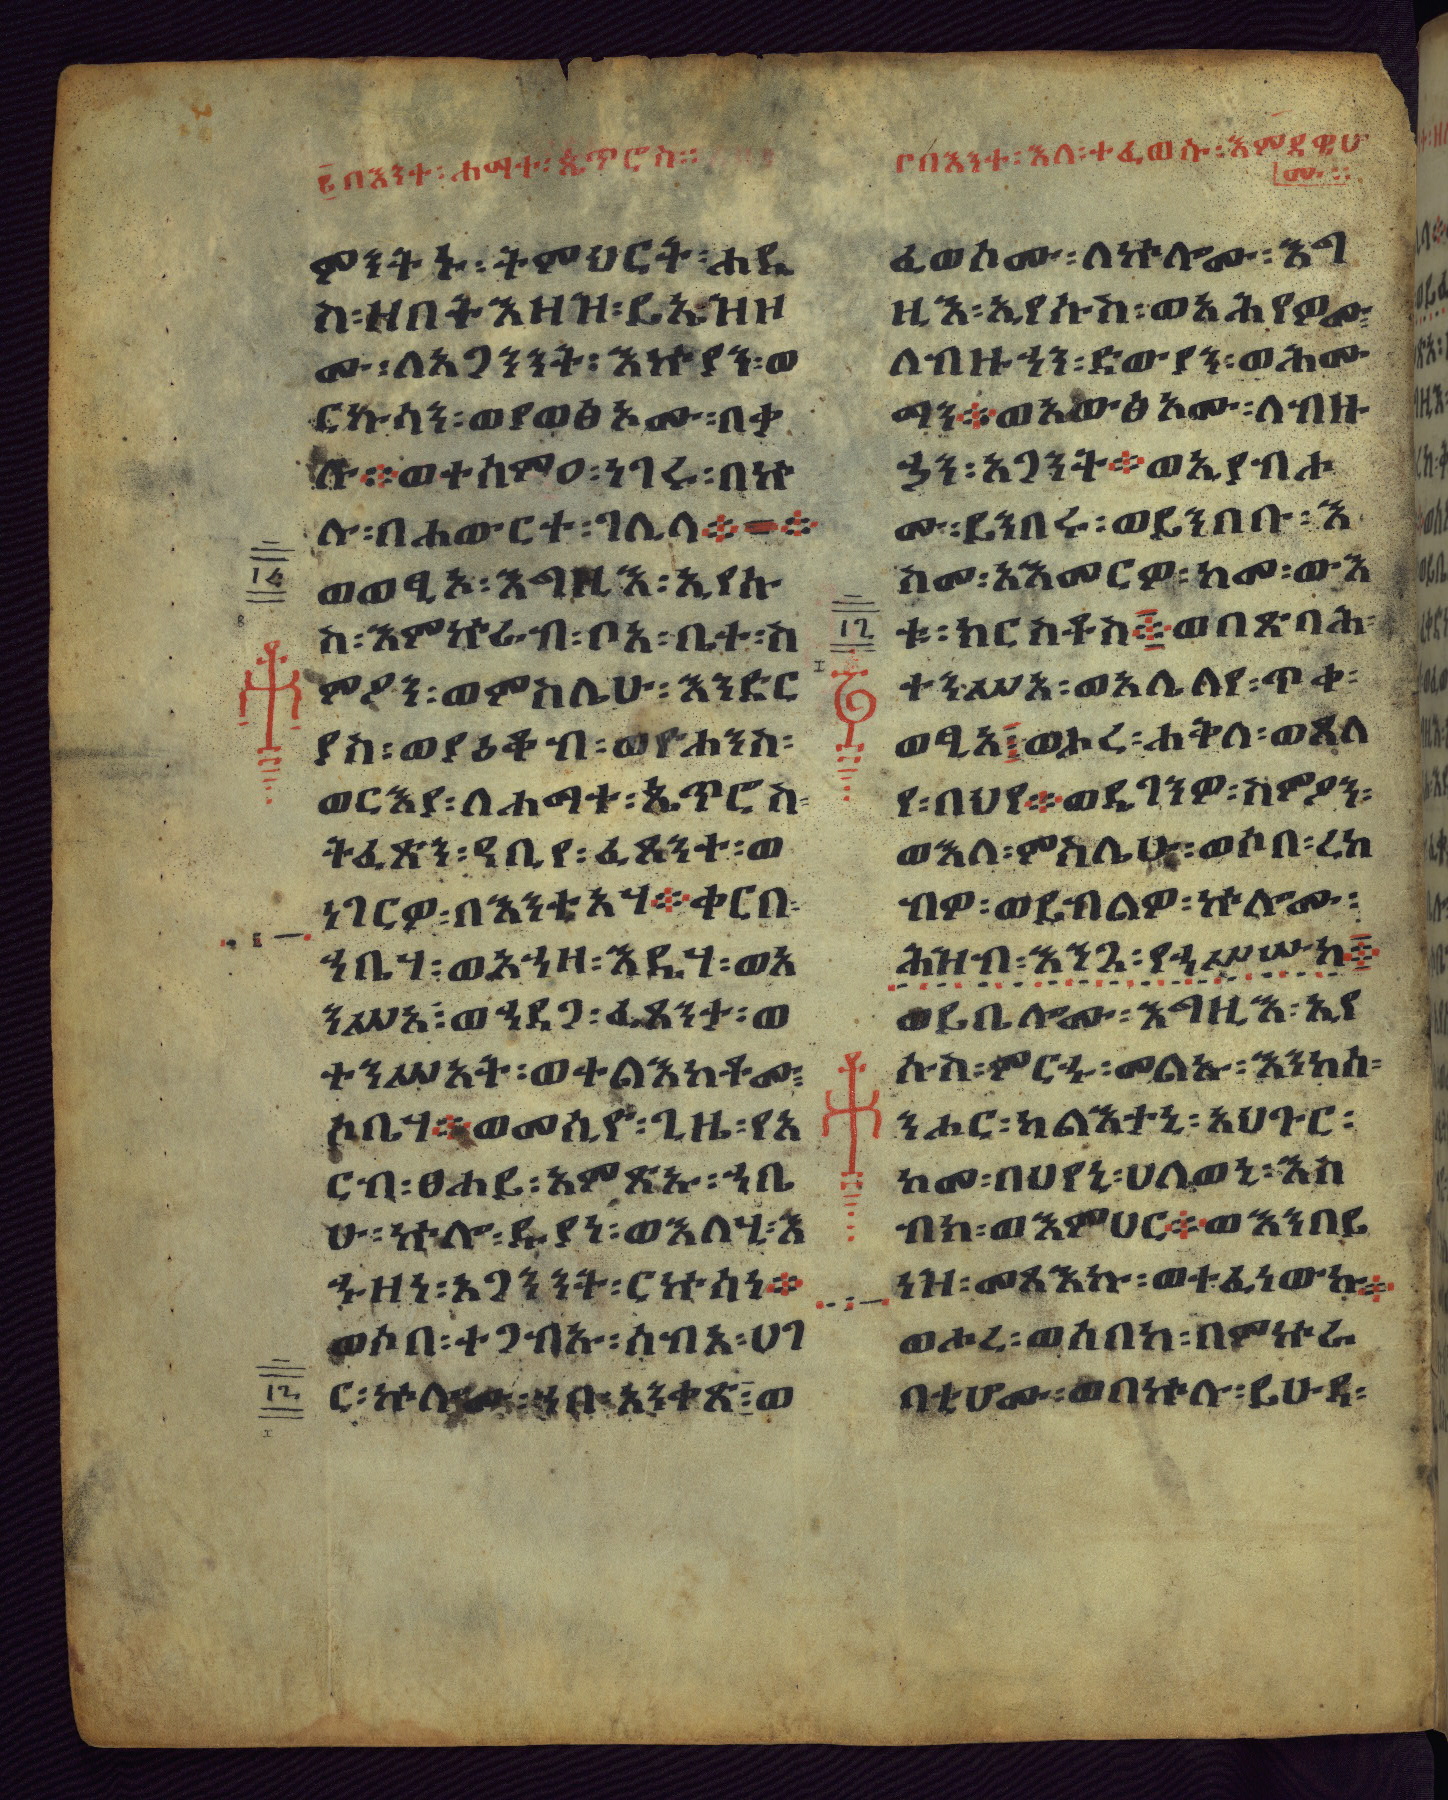 ፪በእንተ፡ሐማተ፡ጴጥሮስ።
ምንትኑ፡ትምህርት፡ሐዲ
ስ፡ዘበትእዛዝ፡ይኤዝዞ
ሙ፡ለአጋንንት፡እኩያን፡ወ
ርኩሳን፡ወየወፅእሙ፡በቃ
ሉ፨ወተሰምዐ፡ነገሩ፡በኵ
ሉ፡በሐውርተ፡ገሊላ፨
ወወፂኦ፡እግዚእ፡ኢየሱ
ስ፡እምኵራብ፡ቦአ፡ቤተ፡ስ
ምዖን፡ወምስሌሁ፡እንድር
ያስ፡ወያዕቆብ፡ወዮሐንስ፡
ወርእየ፡ለሐማተ፡ጴጥሮስ፡
ትፈጽን፡ዓቢየ፡ፈጸንተ፡ወ
ነገርዎ፡በእንቲአሃ፨ቀርበ፡
ኀቤሃ፡ወአኀዘ፡እዴሃ፡ወአ
ንሥአ፡ወኀደጋ፡ፈጸንታ፡ወ
ተንሥአት፡ወተልእከቶሙ፡
ሶቤሃ፨ወመስዮ፡ጊዜ፡የአ
ርብ፡ፀሐይ፡አምጽኡ፡ኀቤ
ሁ፡ኵሎ፡ዱያነ፡ወእለሂ፡እ
ኁዛነ፡አጋንንት፡ርኩሳን፨
ወሶበ፡ተጋብኡ፡ሰብአ፡ሀገ
ር፡ኵሎሙ፡ኀበ፡አንቀጽ፡ወ
፫በእንተ፡እለ፡ተፈወሱ፡እምደዌሆ
ሙ።
ፈወሶሙ፡ለኵሎሙ፡እግ
ዚእ፡ኢየሱስ፡ወአሕየዎሙ፡
ለብዙኀን፡ድውያን፡ወሕሙ
ማን፨ወአውፅአሙ፡ለብዙ
ኃን፡አጋንት፨ወኢያብሐ
ሙ፡ይንበሩ፡ወይንበቡ፡እ
ስመ፡አእመርዎ፡ከመ፡ውእ
ቱ፡ክርስቶስ፨ወበጽባሕ፡
ተንሥአ፡ወአሌለየ፡ጥቀ፡
ወፂአ፡ወሖረ፡ሐቅለ፡ወጸለ
የ፡በህየ፨ወዴገንዎ፡ስምዖን፡
ወእለ፡ምስሌሁ፡ወሶበ፡ረከ
ብዎ፡ወይብልዎ፡ኵሎሙ፡
ሕዝብ፡እንጋ፡የኀሥሡከ፨
ወይቤሎሙ፡እግዚእ፡ኢየ
ሱስ፡ምርሑ፡መልኡ፡እንከሰ፡
ንሑር፡ካልእተኒ፡አህጉር፡
ከመ፡በህየኒ፡ሀለወኒ፡እስ
ብክ፡ወእምሀር፨ወእንበይ
ነዝ፡መጻእኩ፡ወተፈነውኩ፨
ወሖረ፡ወሰበከ፡በምኵራ
ባቲሆሙ፡ወበኵሉ፡ይሁዳ፡
14
12
12